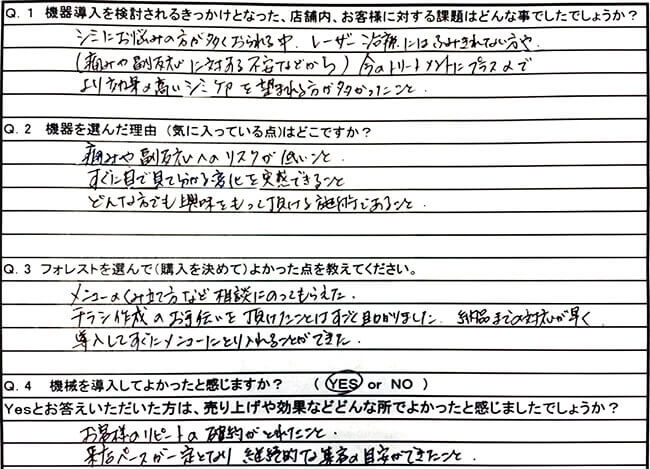 Q. 1 機器導入を検討されるきっかけとなった、店舗内、お客様に対する課題はどんな事でしたでしょうか?
シミにお悩みの方が多くおられる中、レーザー治療にはふみきれない方や、
(痛みや副反応に対する不安などから)今のトリートメントにプラスαで
より効果の高いシミケアを望まれる方が多かったこと.
Q. 2 機器を選んだ理由 (気に入っている点)はどこですか?
痛みや副反応へのリスクが低いこと.
すぐに目で見て分かる変化を実感できること
どんな方でも興味をもって頂ける施術であること.
Q. 3 フォレストを選んで(購入を決めて)よかった点を教えてください。
メニューのくみ立て方など相談にのってもらえた.
チラシ作成のお手伝いを頂けたことはすごく助かりました. 納品までの対応が早く
導入してすぐにメニューにとり入れることができた.
Q. 4 機械を導入してよかったと感じますか? ( YES or NO )
Yesとお答えいただいた方は、売り上げや効果などどんな所でよかったと感じましたでしょうか?
お客様のリピートの確約がとれたこと.
来店ペースが一定となり 継続的な集客の目安ができたこと